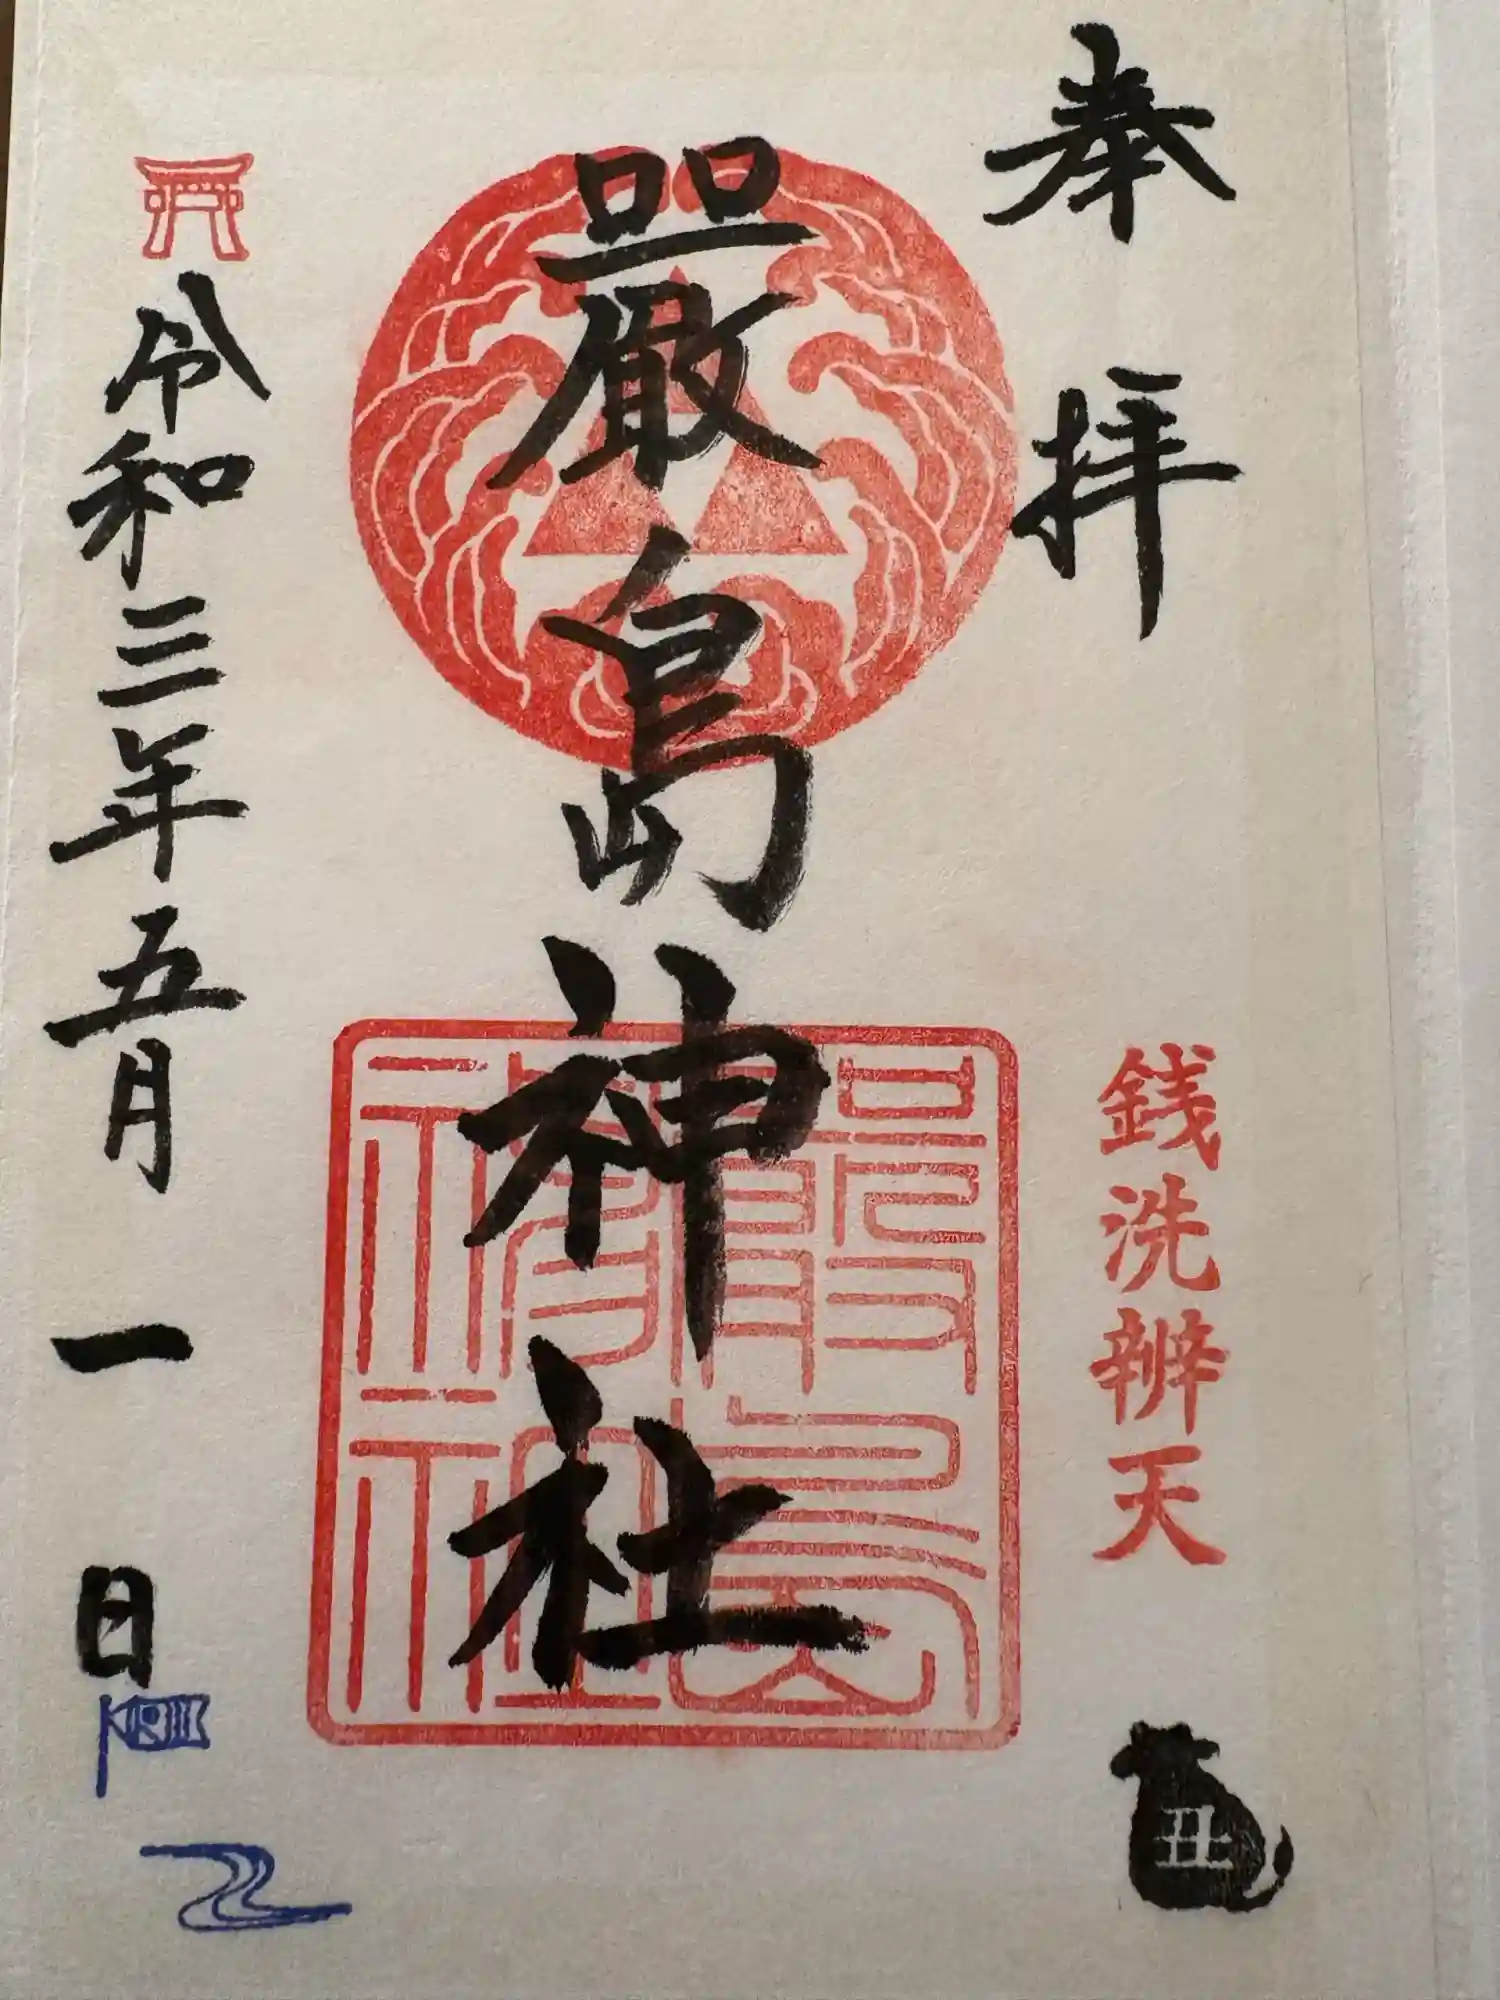 奉拝
嚴島神社
嚴島神社
銭洗辨天
丑
令和三年五月一日